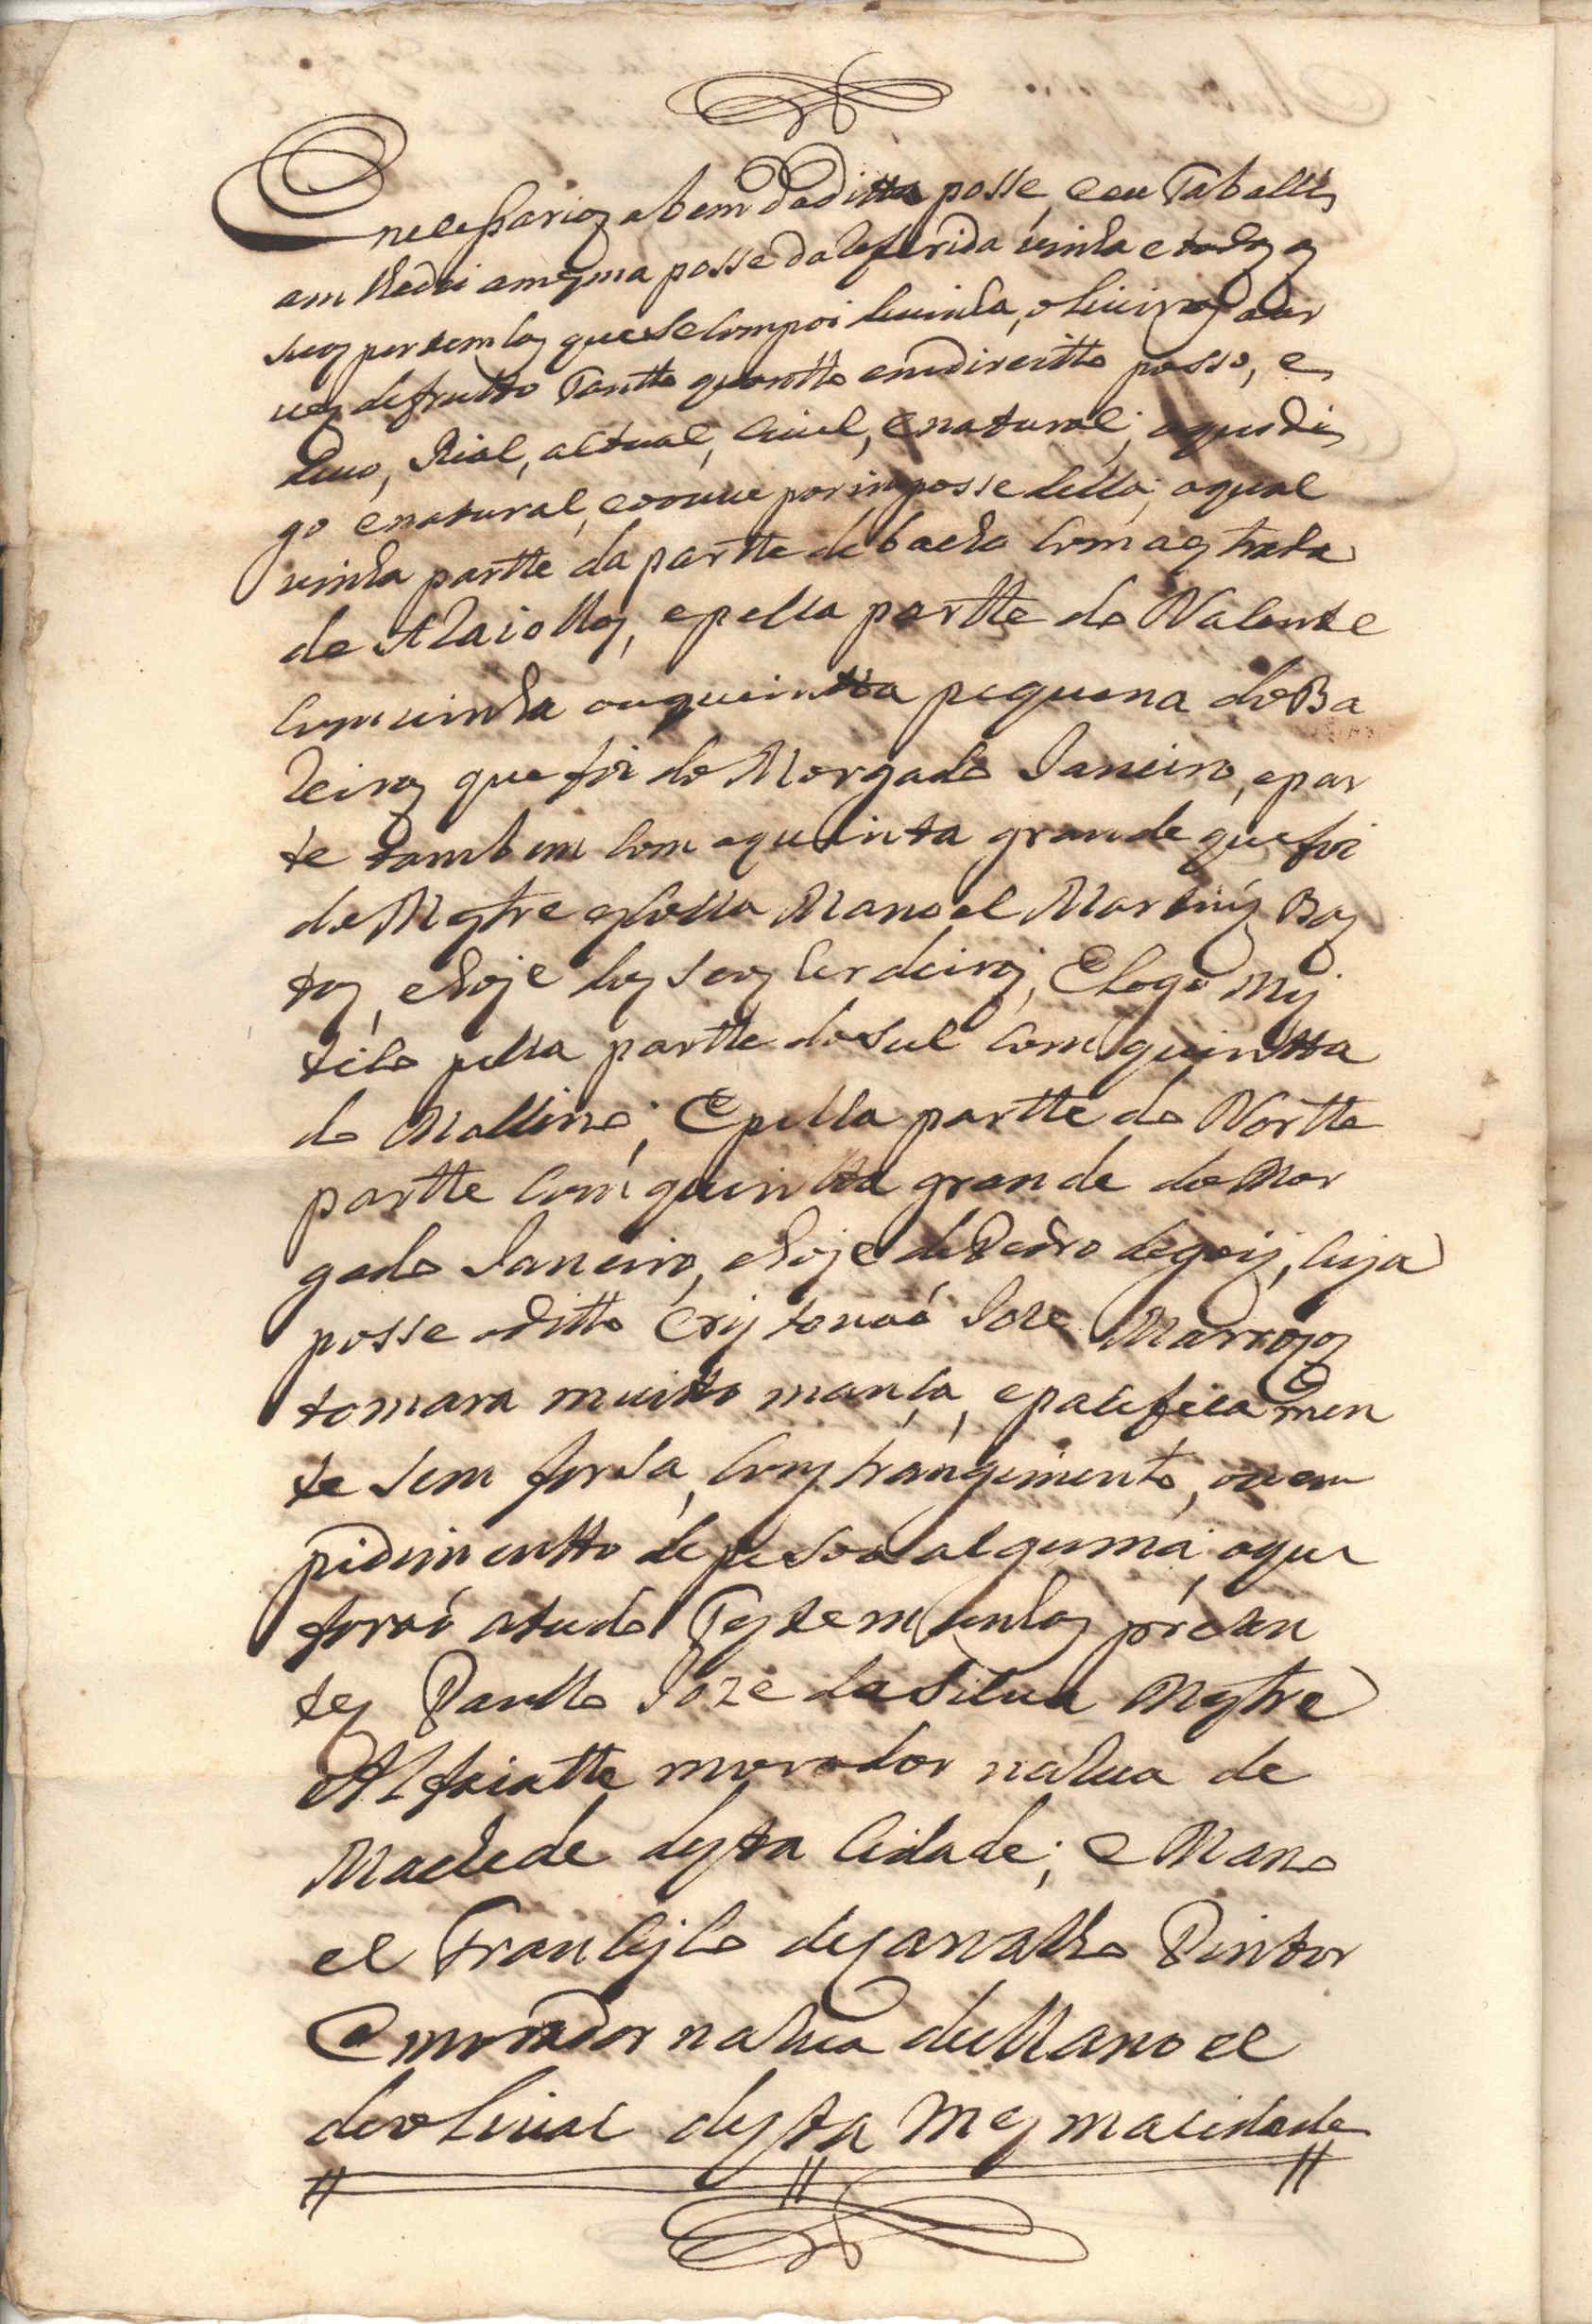 necessarios abem daditta posse, eeu Taballi
am lhedei amesma posse dareferida vinha etodos os
seos pertemsas quesecompoi de vinha, oliveiras arv
ves defrutto Tantto quantto emdireitto posso, e
devo, Rial, actual, civel, enatural;
go enatural, eoouve porimposse della; aqual
vinha partte da partte debacho comaestrada
de Araiollos, epella partte do Valente
comvinha ouquintta pequena doBa
reiros que foi do Morgado Janeiro, epar
te tambem com aquinta grande que foi
do Mestre escolla Manoel Martins Bas
tos, ehoje dos seos Erdeiros, Elogo Mis
tico pella partte dosul com quintta
do Mallino; Epella partte do Nortte
partte com quintta grande do Mor
gado Janeiro, ehoje dePedro degois, cuja
posse oditto Cristovaó Joze Marrocos
tomara muitto mança, epacificamen
te sem forsa, constrangimento, ouem
pidimentto de pesoa alguma; aque
foraó atudo Testemunhas prezen
tes Paullo Joze dasilva Mestre
Alfaiatte morador narua de
Machede desta cidade; e Mano
el Francisco decarvalho Pintor
Emorador narua deManoel
deolival desta mesmacidade